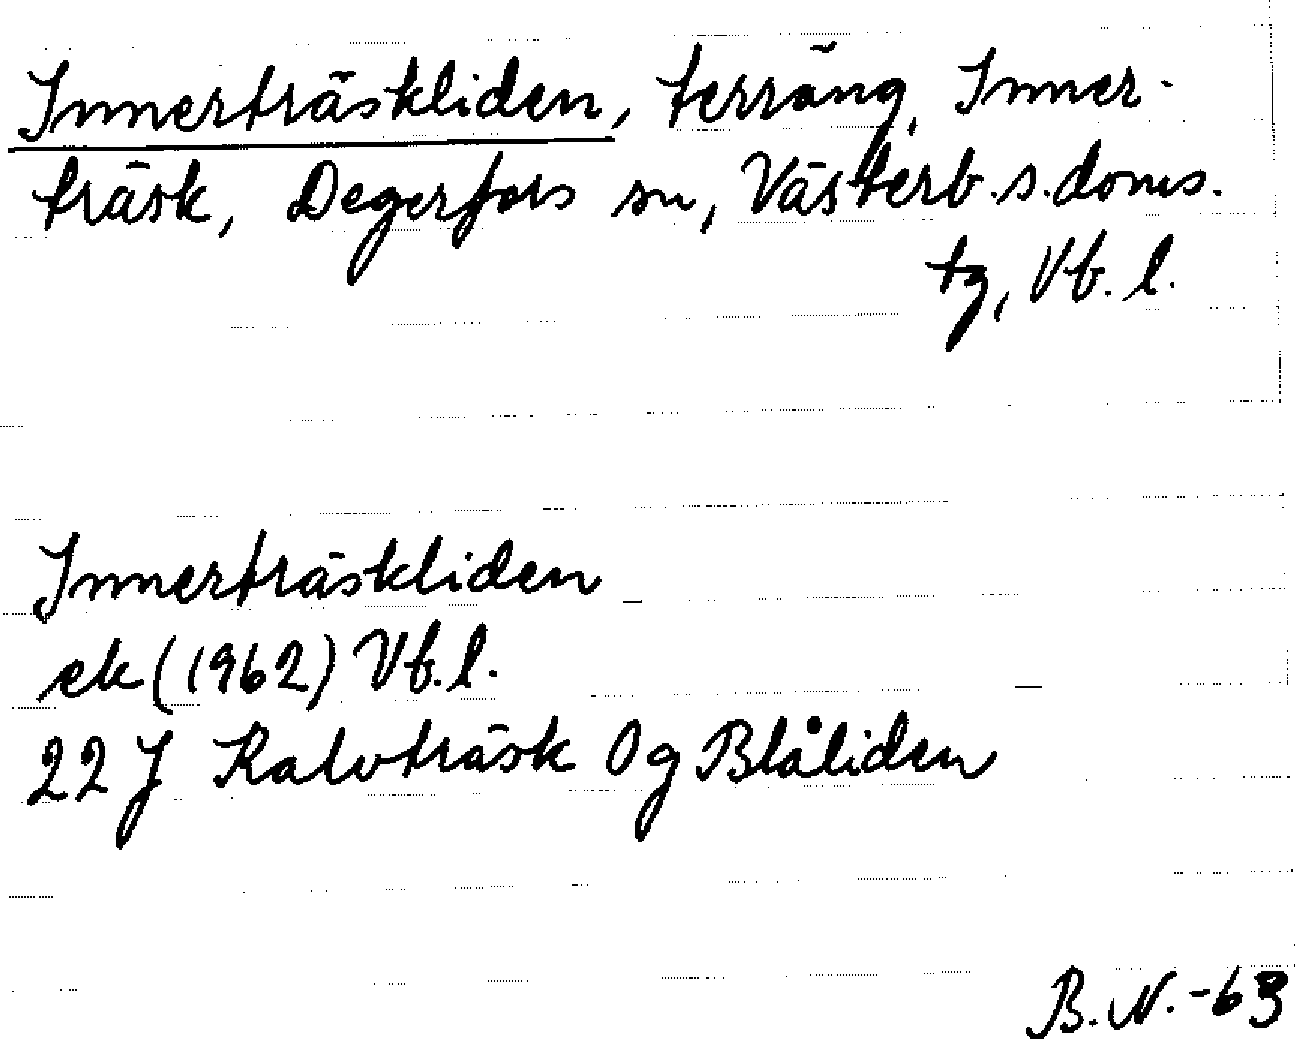 Innerträskliden, terräng, Inner-
träsk, Degerfors sn, Västerb. s. doms.
tg, Vb. l.
Innerträskliden
ek (1962) Vb. l.
22 J Kalvträsk 0g Blåliden
B. N. -63